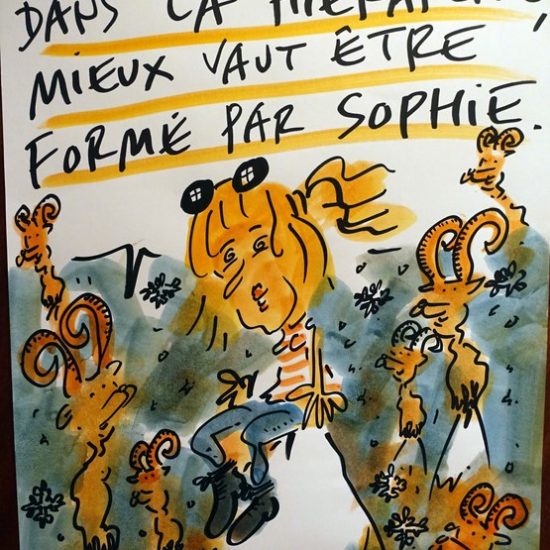 DANS LA
MIEUX VAUT ÊTRE
FORMÉ PAR SOPHIE.